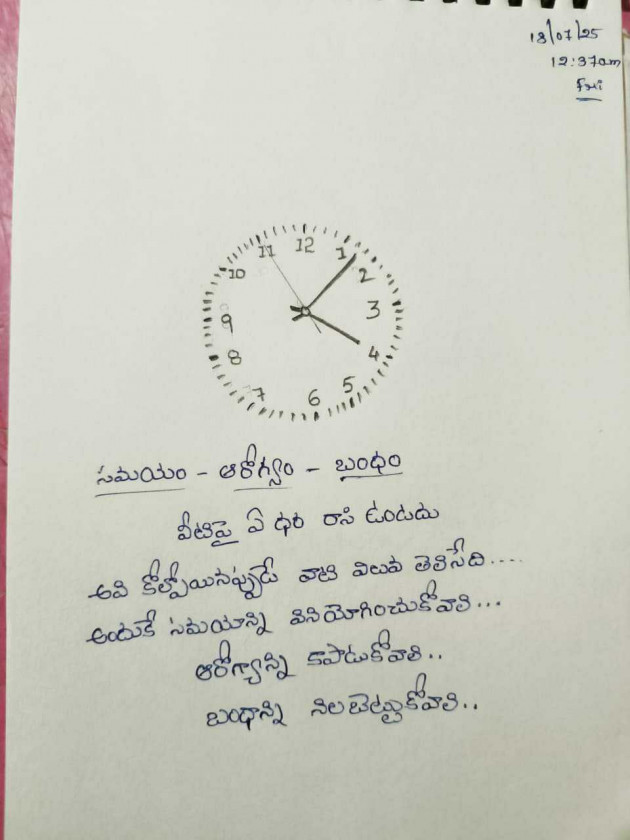 18/07/25
12:37am
Fri
12
1
2
3
4
5
6
7
8
9
10
11
సమయం - ఆరోగ్యం - బంధం
వీటిపై ఏ ధర రాసి ఉంటదు
అవి కోల్పోయినప్పుడే వాటి విలువ తెలిసేది....
అందుకే సమయాన్ని వినియోగించుకోవాలి...
ఆరోగ్యాన్ని కాపాడుకోవాలి..
బంధాన్ని నిలబెట్టుకోవాలి..